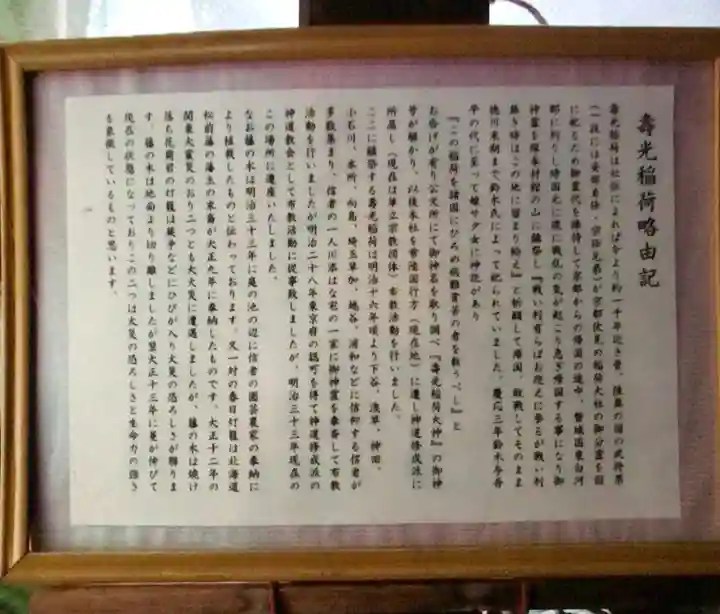 壽光稲荷略由記
壽光稲荷は社伝によれば今より約一千年近き昔、陸奥の国の武将某
(一説には安田貞任・宗任兄弟)が京都伏見の稲荷大社の御分霊を祖
に祀るため御霊代を捧持して京都からの帰国の途中、磐城国東白河
郡に到りし時国元に既に戦乱の気が起こり急ぎ帰国する事になり御
神霊を塚本村館の山に鎮祭し『戦い利有らばお迎えに参るが戦い利
無き時はこの地に留まり給え』と祈願して帰国、敗戦してそのまま
徳川末期まで鈴木氏によって祀られていました。慶応三年鈴木与吾
平の代に至って娘サク女に神託があり
『この稲荷を諸国にひろめ病難貧苦の者を救うべし』と
お告げが有り公文所にて御神名を取り調べ『壽光稲荷大神』の御神
号が解かり、以後本社を常陸国行方(現在地)に遷し神道修成派に
所属し(現在は単立宗教団体)布教活動を行いました。
ここに鎮祭する壽光稲荷は明治十六年頃より下谷、浅草、神田、
小石川、本所、向島、埼玉草加、越谷、浦和などに信仰する信者が
多数集まり、信者の一人川添はな宅の一室に御神霊を奉斎して布教
活動を行いましたが明治二十八年東京府の認可を得て神道修成派の
神道教会として布教活動に従事致しましたが、明治三十三年現在の
この場所に遷座いたしました。
なお藤の木は明治三十三年に庭の池の辺に信者の園芸農家の奉納に
より植栽したものと伝わっております。又一対の春日灯籠は北海道
松前藩の藩主の末裔が大正九年に奉納したものです。大正十二年の
関東大震災のおり二つとも大火災に遭遇しましたが、藤の木は焼け
落ち花崗岩の灯籠は熱争などにひびが入り火災の恐ろしさが解りま
す。藤の木は地面より切り離しましたが翌大正十三年に蔓が伸びて
現在の状態になっておりこの二つは火災の恐ろしさと生命力の強さ
を象徴しているものと思います。